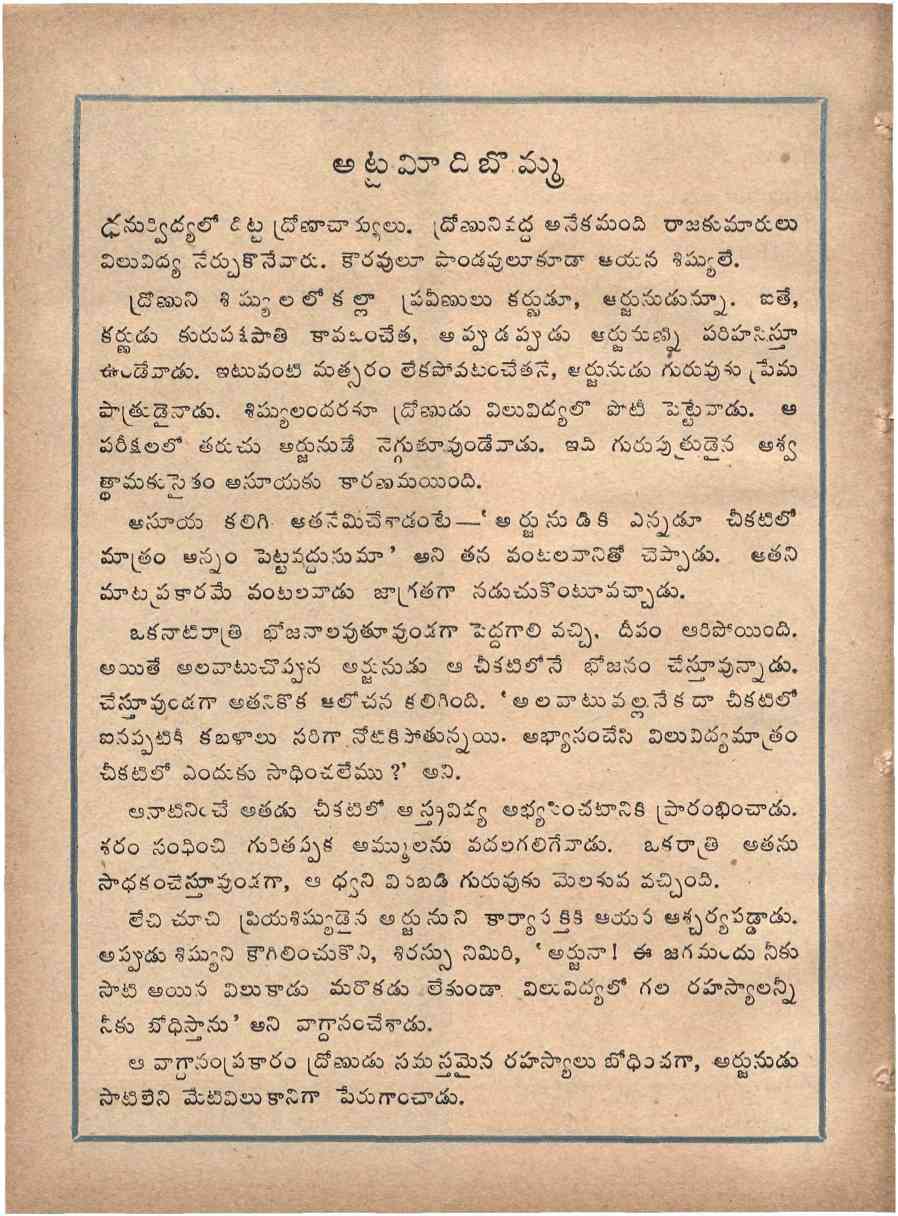 అట్టమీది బొమ్మ
ధనుర్విద్యలో దిట్ట ద్రోణాచార్యులు. ద్రోణునివద్ద అనేకమంది రాజకుమారులు
విలువిద్య నేర్చుకొనేవారు. కౌరవులూ పాండవులూకూడా ఆయన శిష్యులే.
ద్రోణుని శిష్యులలో కల్లా ప్రవీణులు కర్ణుడూ, అర్జునుడున్నూ. ఐతే,
కర్ణుడు కురుపక్షపాతి కావటంచేత, అప్పుడప్పుడు అర్జునుణ్ని పరిహసిస్తూ
ఉండేవాడు. ఇటువంటి మత్సరం లేకపోవటంచేతనే, అర్జునుడు గురువుకు ప్రేమ
పాత్రుడైనాడు. శిష్యులందరకూ ద్రోణుడు విలువిద్యలో పోటీ పెట్టేవాడు. ఆ
పరీక్షలలో తరుచు అర్జునుడే నెగ్గుతూవుండేవాడు. ఇది గురుపుత్రుడైన అశ్వ
త్థామకుసైతం అసూయకు కారణమయింది.
అసూయ కలిగి ఆతనేమిచేశాడంటే—‘అర్జునుడికి ఎన్నడూ చీకటిలో
మాత్రం అన్నం పెట్టవద్దుసుమా’ అని తన వంటలవానితో చెప్పాడు. అతని
మాటప్రకారమే వంటలవాడు జాగ్రతగా నడుచుకొంటూవచ్చాడు.
ఒకనాటిరాత్రి భోజనాలవుతూవుండగా పెద్దగాలి వచ్చి, దీపం ఆరిపోయింది.
అయితే అలవాటుచొప్పున అర్జునుడు ఆ చీకటిలోనే భోజనం చేస్తూవున్నాడు.
చేస్తూవుండగా అతనికొక ఆలోచన కలిగింది. ‘అలవాటువల్లనేకదా చీకటిలో
ఐనప్పటికీ కబళాలు సరిగా నోటికిపోతున్నయి. అభ్యాసంచేసి విలువిద్యమాత్రం
చీకటిలో ఎందుకు సాధించలేము?’ అని.
ఆనాటినించే అతడు చీకటిలో అస్త్రవిద్య అభ్యసించటానికి ప్రారంభించాడు.
శరం సంధించి గురితప్పక అమ్ములను వదలగలిగేవాడు. ఒకరాత్రి అతను
సాధకంచేస్తూవుండగా, ఆ ధ్వని వినబడి గురువుకు మెలకువ వచ్చింది.
లేచి చూచి ప్రియశిష్యుడైన అర్జునుని కార్యాసక్తికి ఆయన ఆశ్చర్యపడ్డాడు.
అప్పుడు శిష్యుని కౌగిలించుకొని, శిరస్సు నిమిరి, ‘అర్జునా! ఈ జగమందు నీకు
సాటి అయిన విలుకాడు మరొకడు లేకుండా విలువిద్యలో గల రహస్యాలన్నీ
నీకు బోధిస్తాను’ అని వాగ్దానంచేశాడు.
ఆ వాగ్దానంప్రకారం ద్రోణుడు సమస్తమైన రహస్యాలు బోధించగా, అర్జునుడు
సాటిలేని మేటివిలుకానిగా పేరుగాంచాడు.